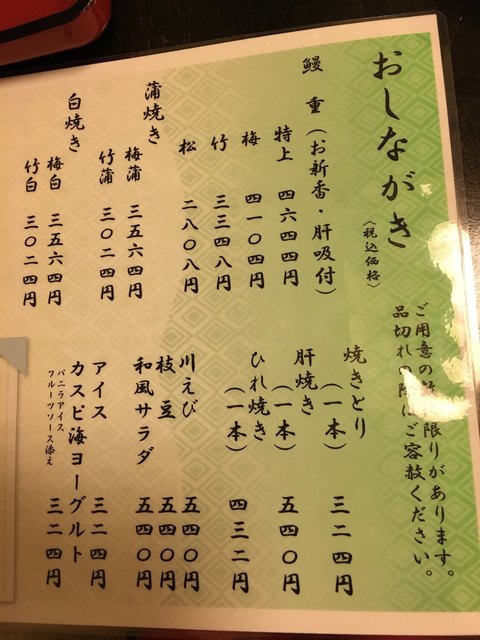 おしながき
〈税込価格〉
ご用意の 限りがあります。
品切れの にご容赦ください。
鰻重(お新香・肝吸付)
特上 四六四四円
梅 四一〇四円
竹 三三四八円
松 二八〇八円
蒲焼き
梅蒲 三五六四円
竹蒲 三〇二四円
白焼き
梅白 三五六四円
竹白 三〇二四円
焼きとり
(一本) 三二四円
肝焼き
(一本) 五四〇円
ひれ焼き
(一本) 四三二円
川えび 五四〇円
枝豆 五四〇円
和風サラダ 五四〇円
アイス 三二四円
カスピ海ヨーグルト 三二四円
バニラアイス
フルーツソース添え